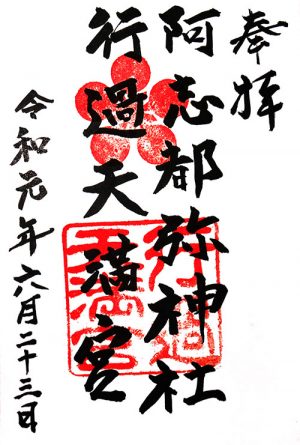 奉拝
阿志都弥神社
行過天満宮
令和元年六月二十三日
行過天満宮